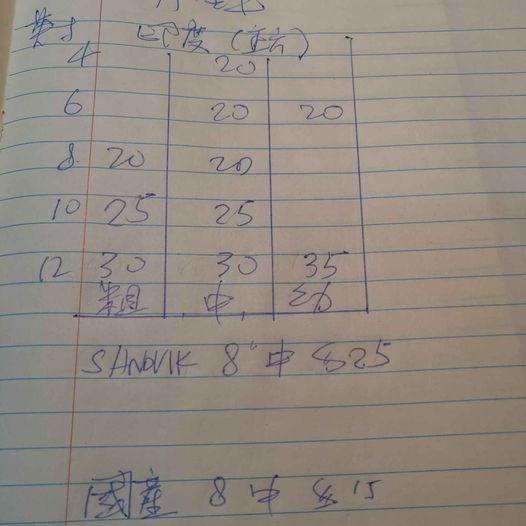 英寸 印度
4 20
6 20 20
8 20 20
10 25 25
12 30 30 35
粗 中 幼
SANDVIK 8" 中 $25
國產 8 中 $15